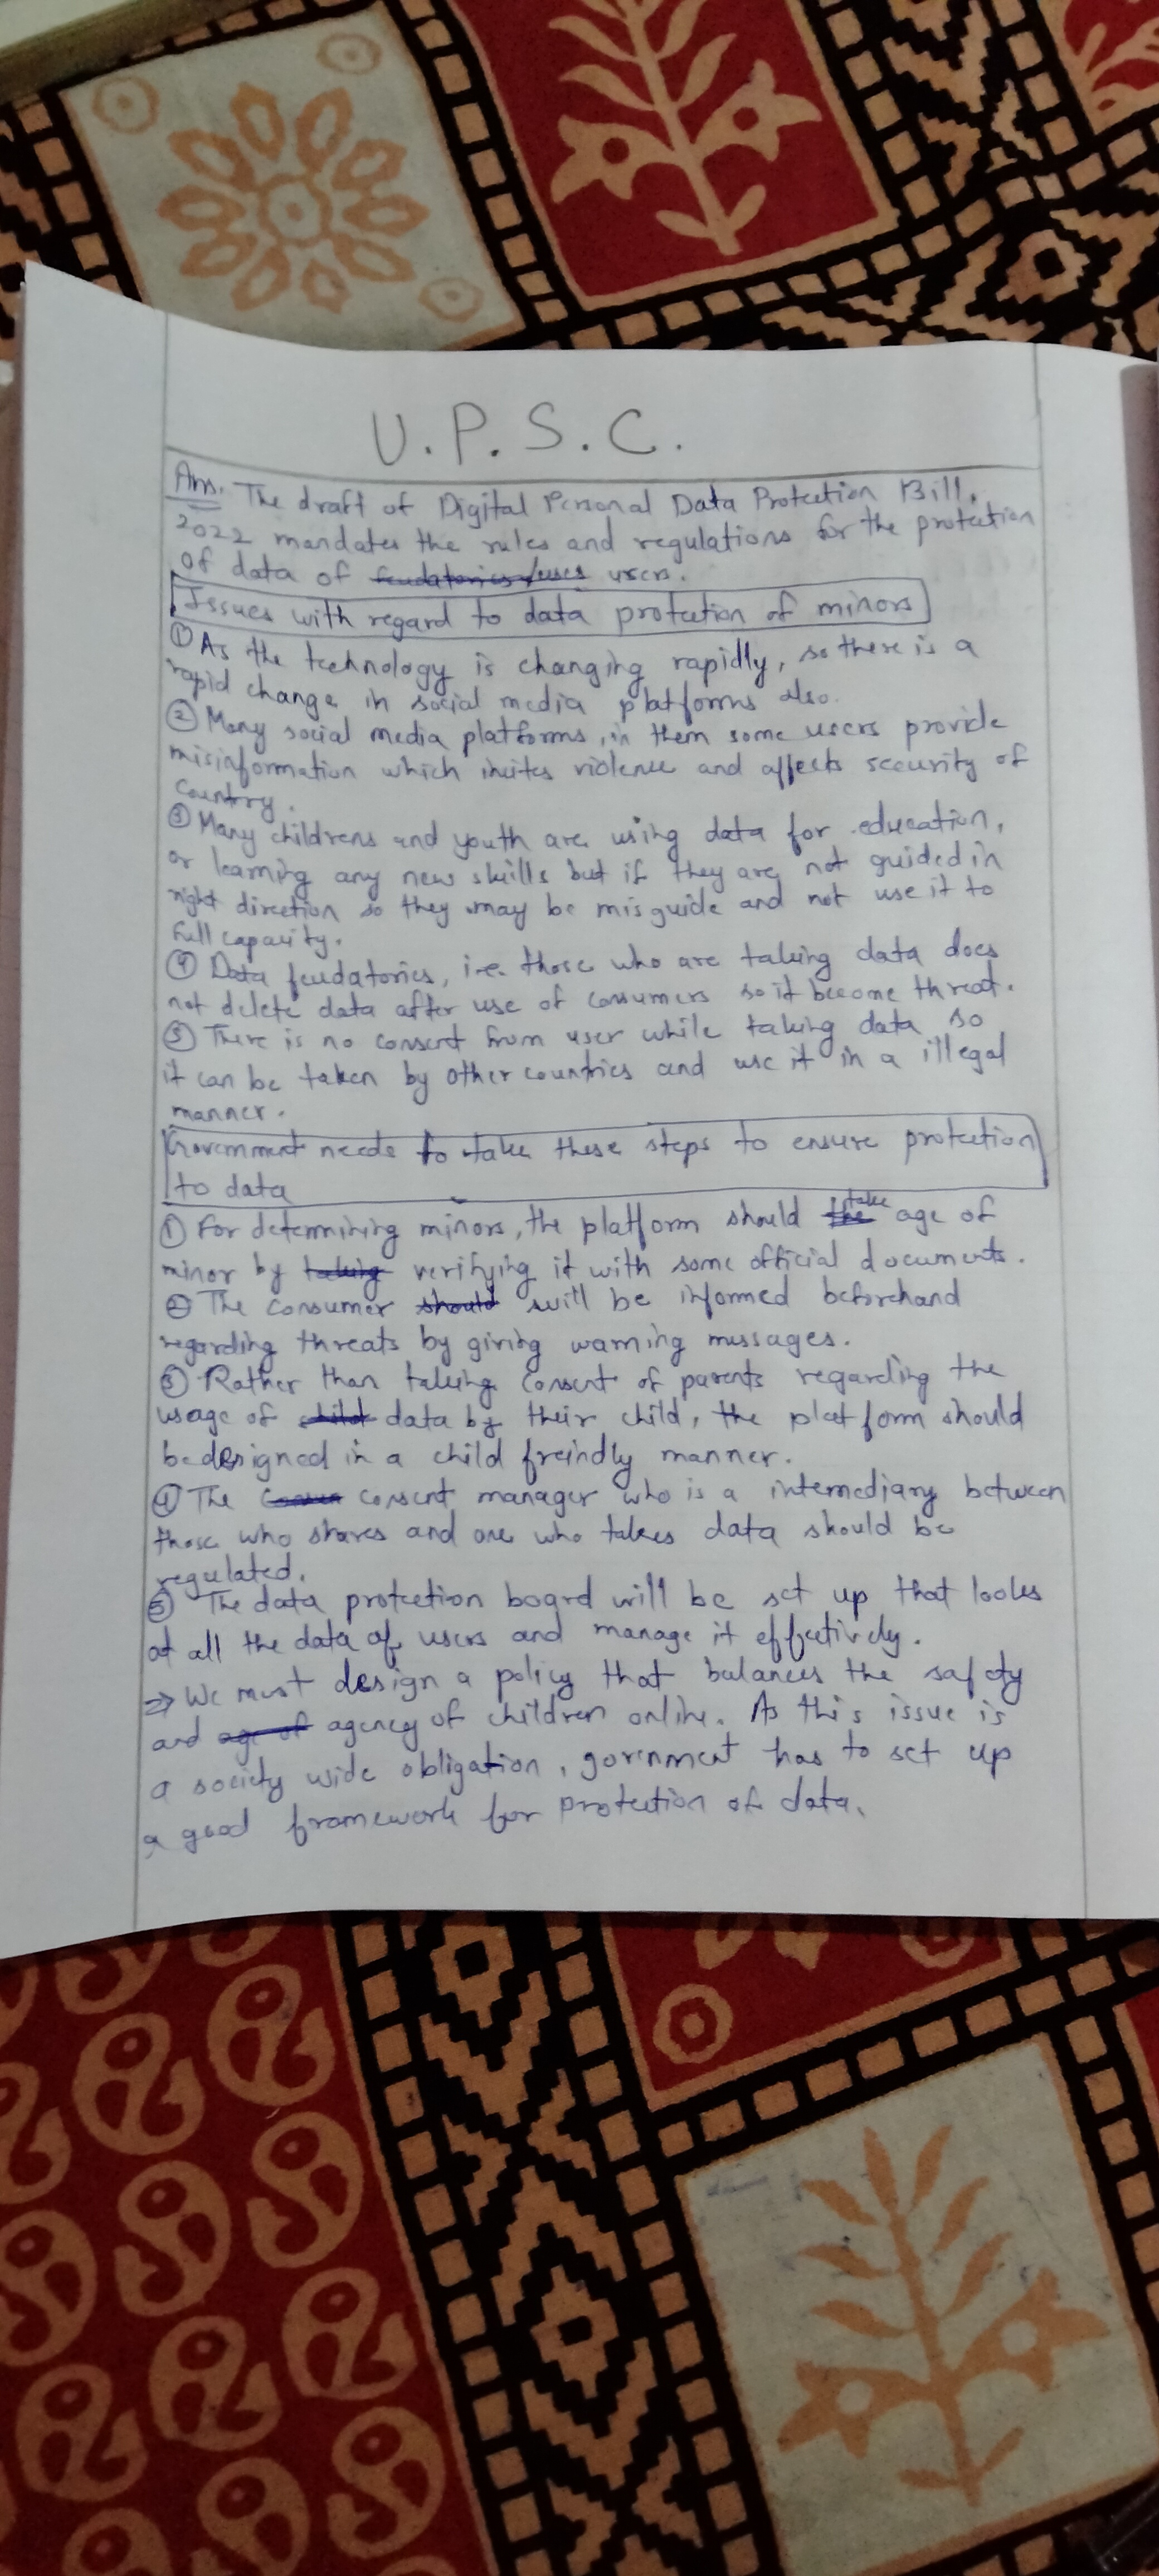 U.P.S.C.
Ans. The draft of Digital Personal Data Protection Bill,
2022 mandates the rules and regulations for the protection
of data of feudatories/uses users.
Issues with regard to data protection of minors
① As the technology is changing rapidly, so there is a
rapid change in social media platforms also.
② Many social media platforms, in them some users provide
misinformation which invites violence and affects security of
country.
③ Many childrens and youth are using data for education,
or learning any new skills but if they are not guided in
right direction so they may be misguide and not use it to
full capacity.
④ Data feudatories, i.e. those who are taking data does
not delete data after use of consumers so it become threat.
⑤ There is no consent from user while taking data so
it can be taken by other countries and use it in a illegal
manner.
Government needs to take these steps to ensure protection
to data
① For determining minors, the platform should the take age of
minor by taking verifying it with some official documents.
② The consumer should will be informed beforehand
regarding threats by giving warning messages.
③ Rather than taking consent of parents regarding the
usage of child data by their child, the platform should
be designed in a child freindly manner.
④ The consent manager who is a intemediary between
those who shares and one who takes data should be
regulated.
⑤ The data protection board will be set up that looks
at all the data of users and manage it effectively.
⇒ We must design a policy that balances the safety
and age of agency of children online. As this issue is
a society wide obligation, government has to set up
a good framework for protection of data.